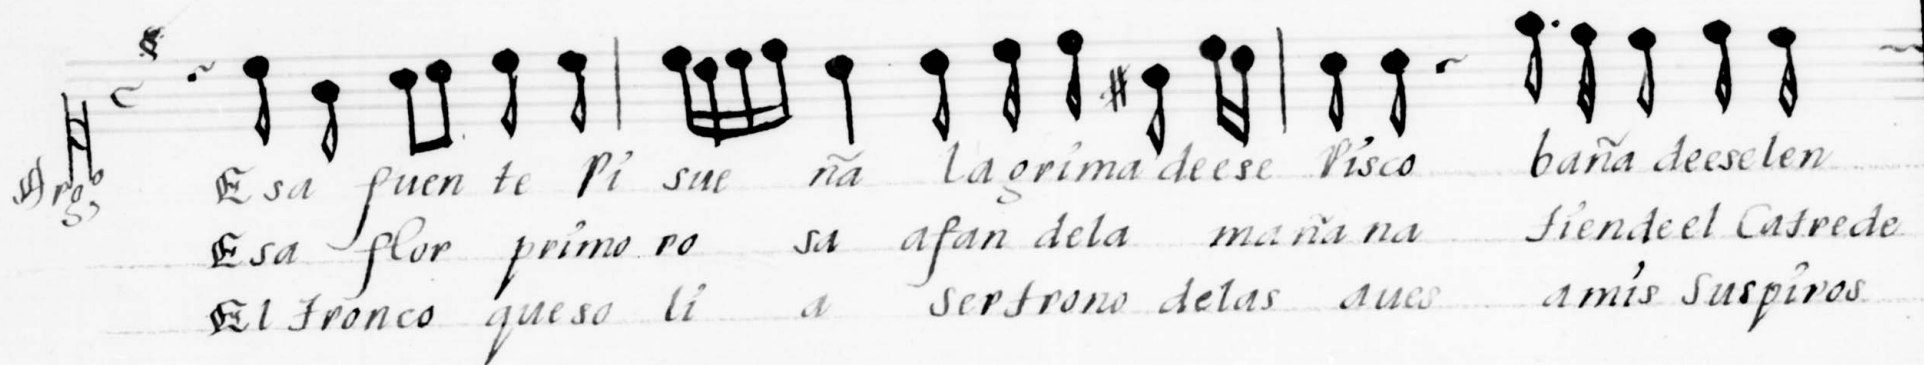 Esa fuen te Ri sue ña lagrima deese Risco baña deeselen
Esa flor primo ro sa afan dela mañana tiendeel Catrede
El tronco queso li a sertrono delas aues amis suspiros